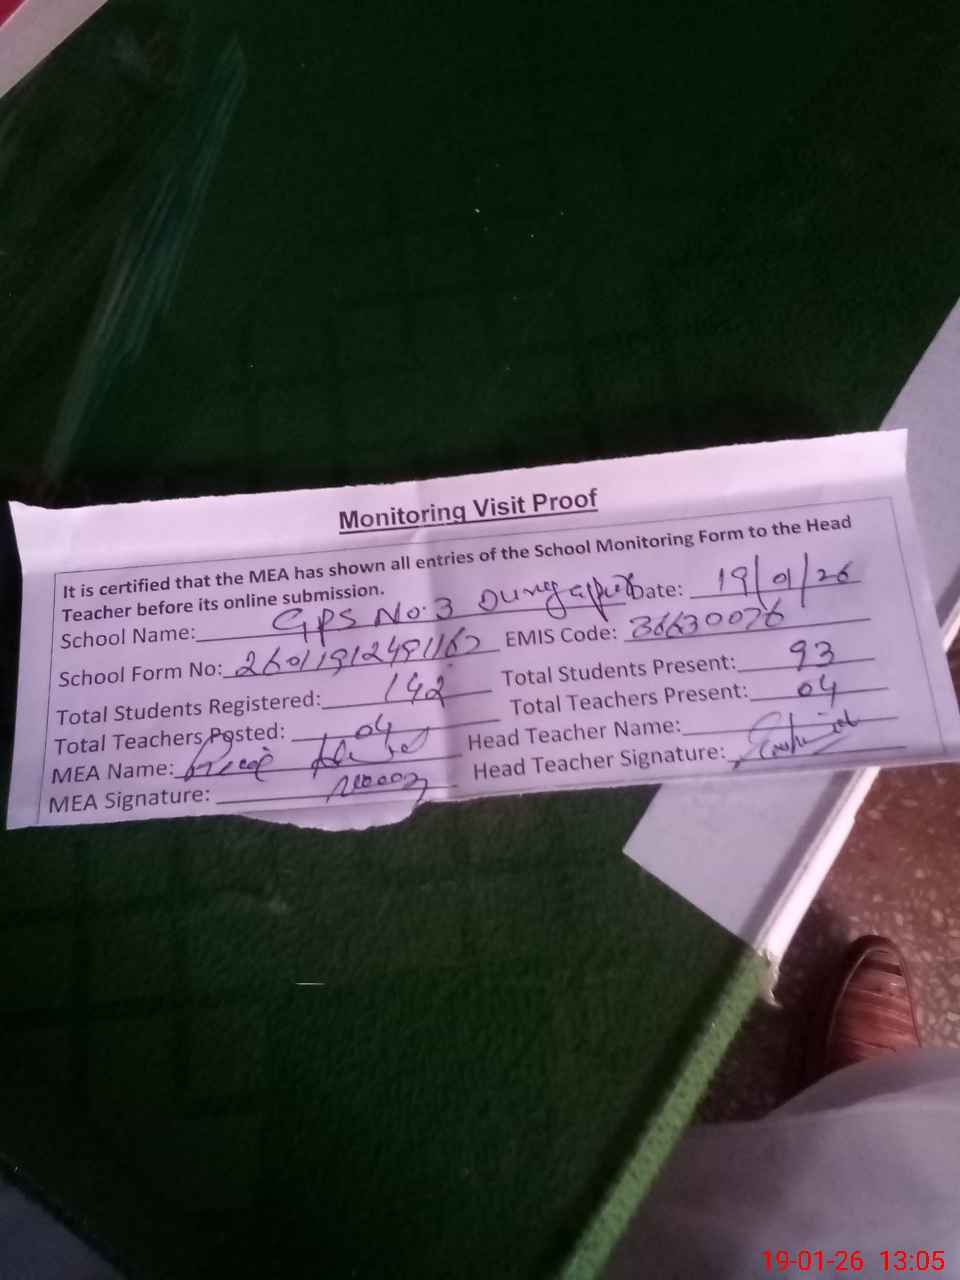 Monitoring Visit Proof
It is certified that the MEA has shown all entries of the School Monitoring Form to the Head
Teacher before its online submission.
School Name: GPS No. 3 Date: 19/01/26
School Form No: EMIS Code: 36630076
Total Students Registered: 142 Total Students Present: 93
Total Teachers Posted: 04 Total Teachers Present: 04
MEA Name: Head Teacher Name:
MEA Signature: Head Teacher Signature:
19-01-26 13:05